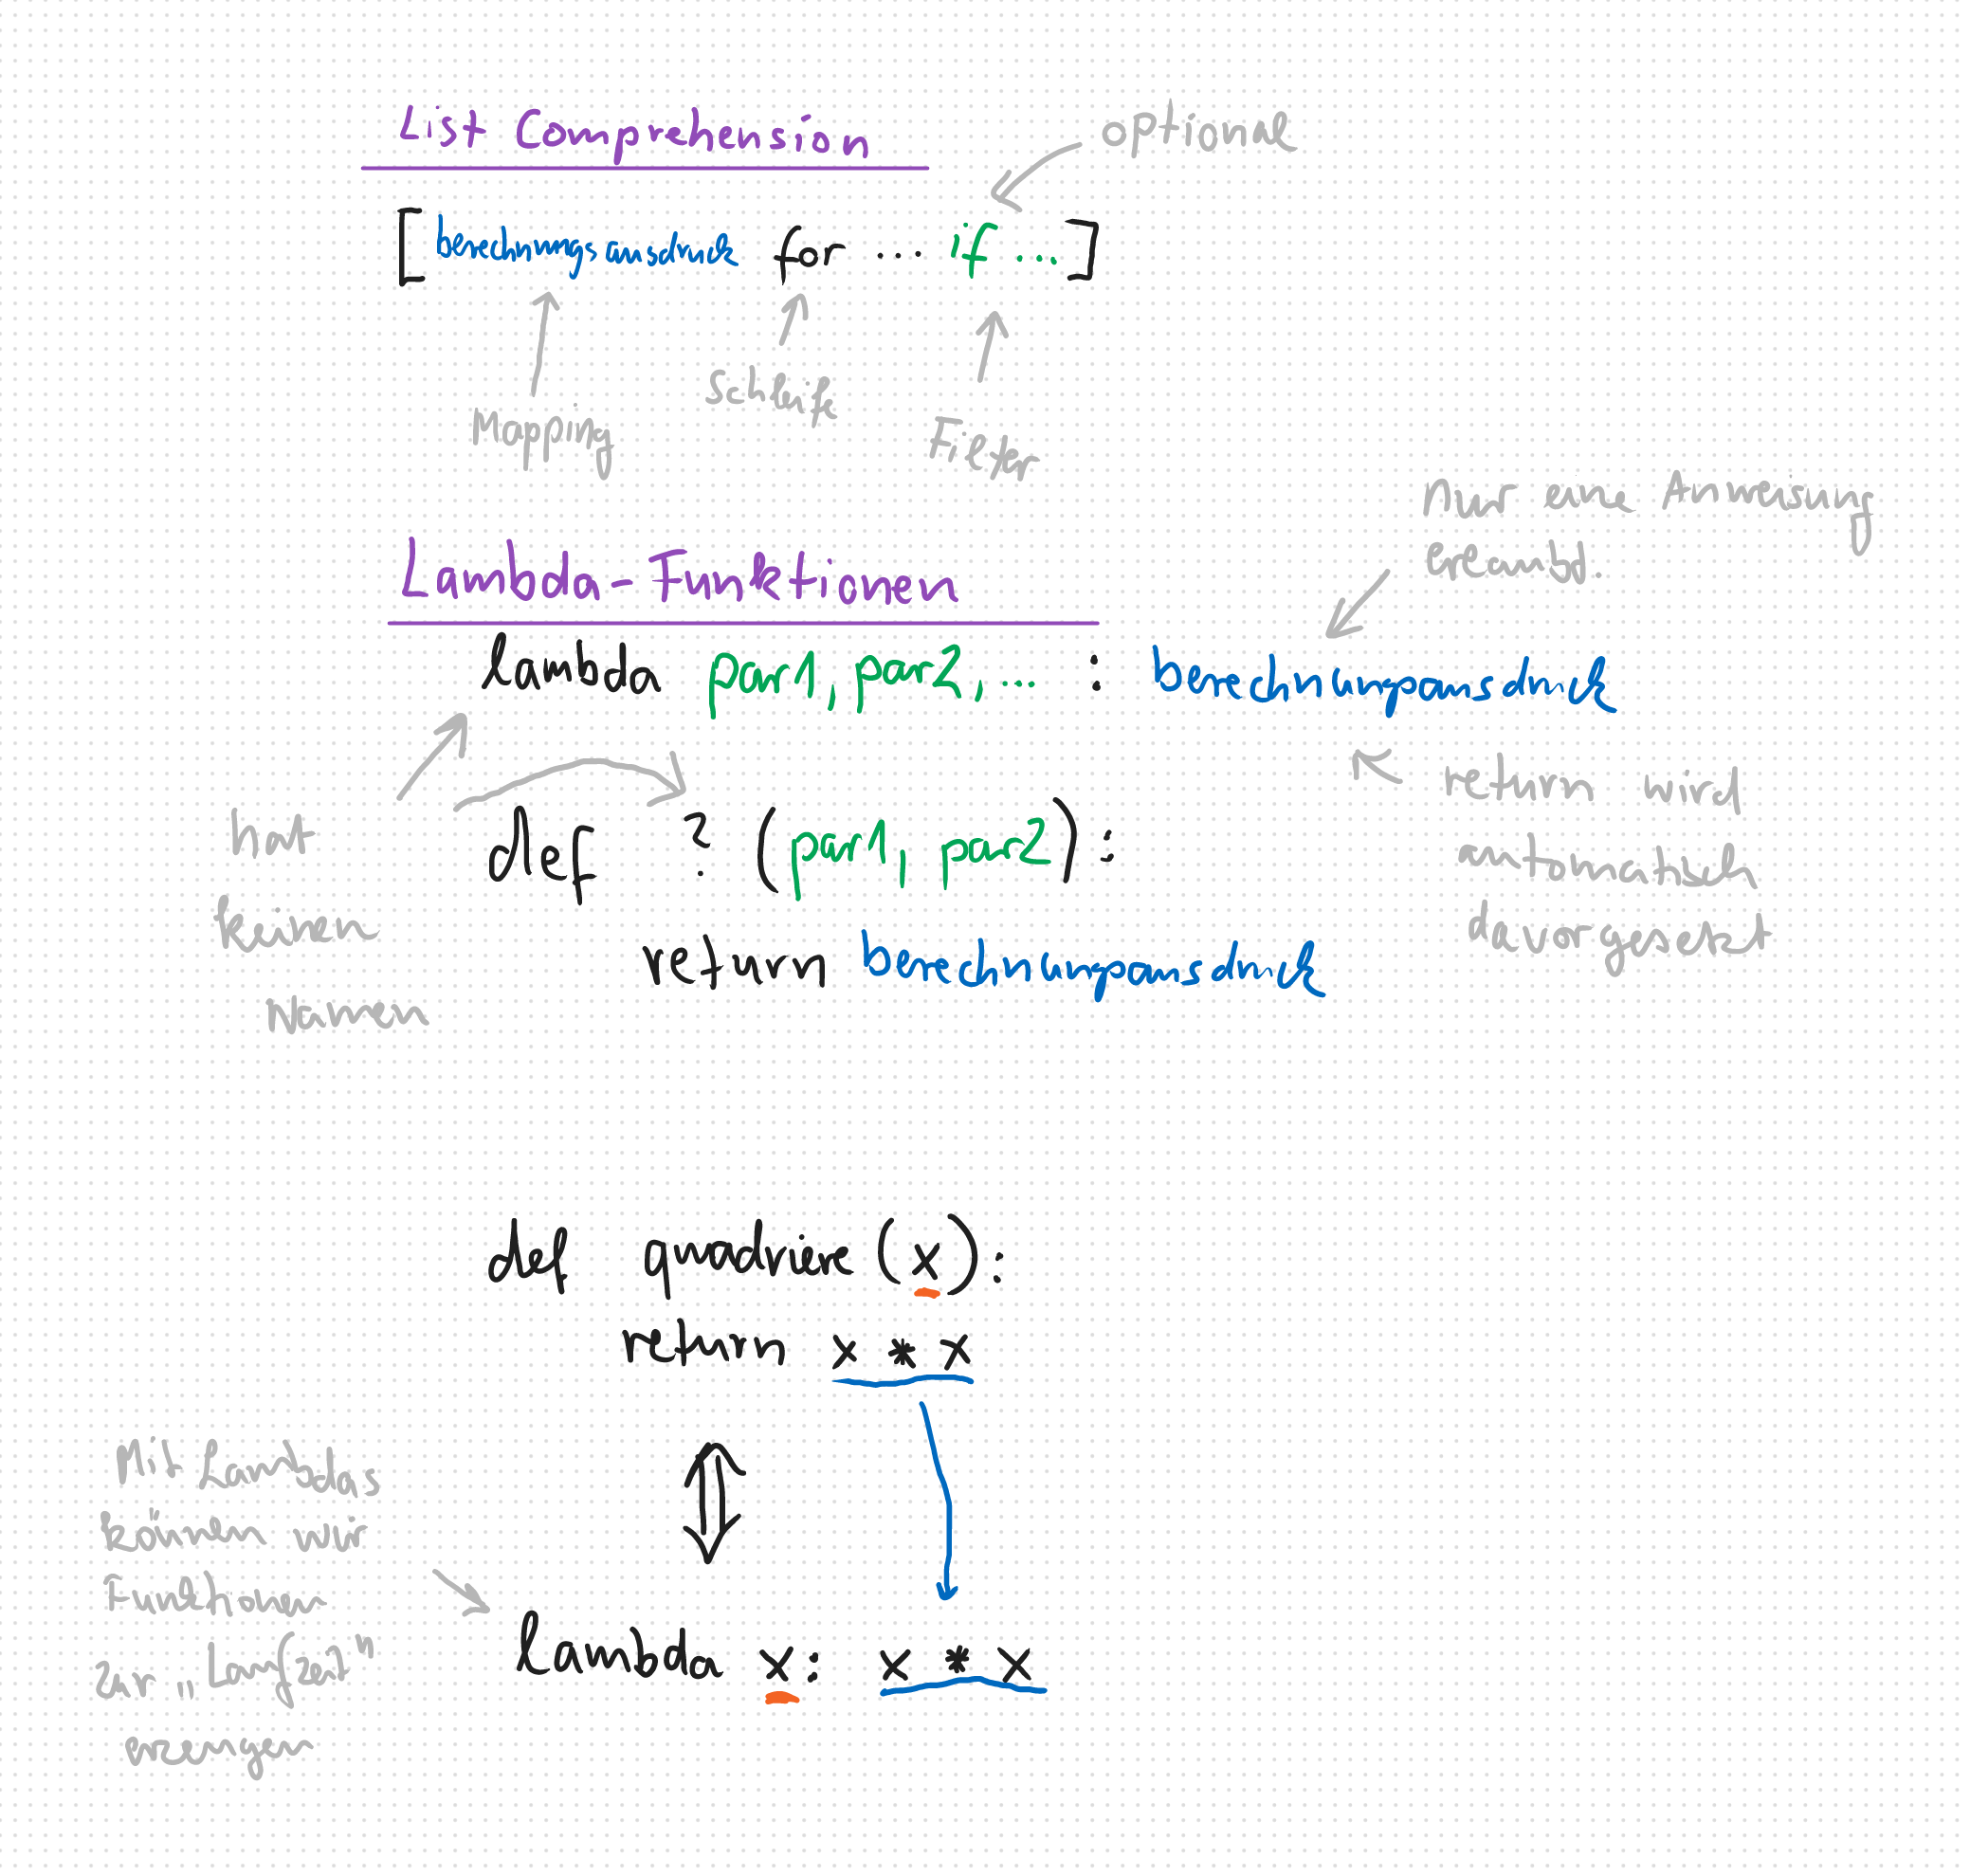 List Comprehension
optional
[berechnungsausdruck for ... if ...]
Mapping
Schleife
Filter
Nur eine Anweisung
erlaubt.
Lambda-Funktionen
lambda par1, par2, ... : berechnungsausdruck
hat
keinen
Namen
def ? (par1, par2):
return berechnungsausdruck
return wird
automatisch
davorgesetzt
def quadriere (x):
return x * x
Mit Lambdas
können wir
Funktionen
zur „Laufzeit"
erzeugen
lambda x: x * x